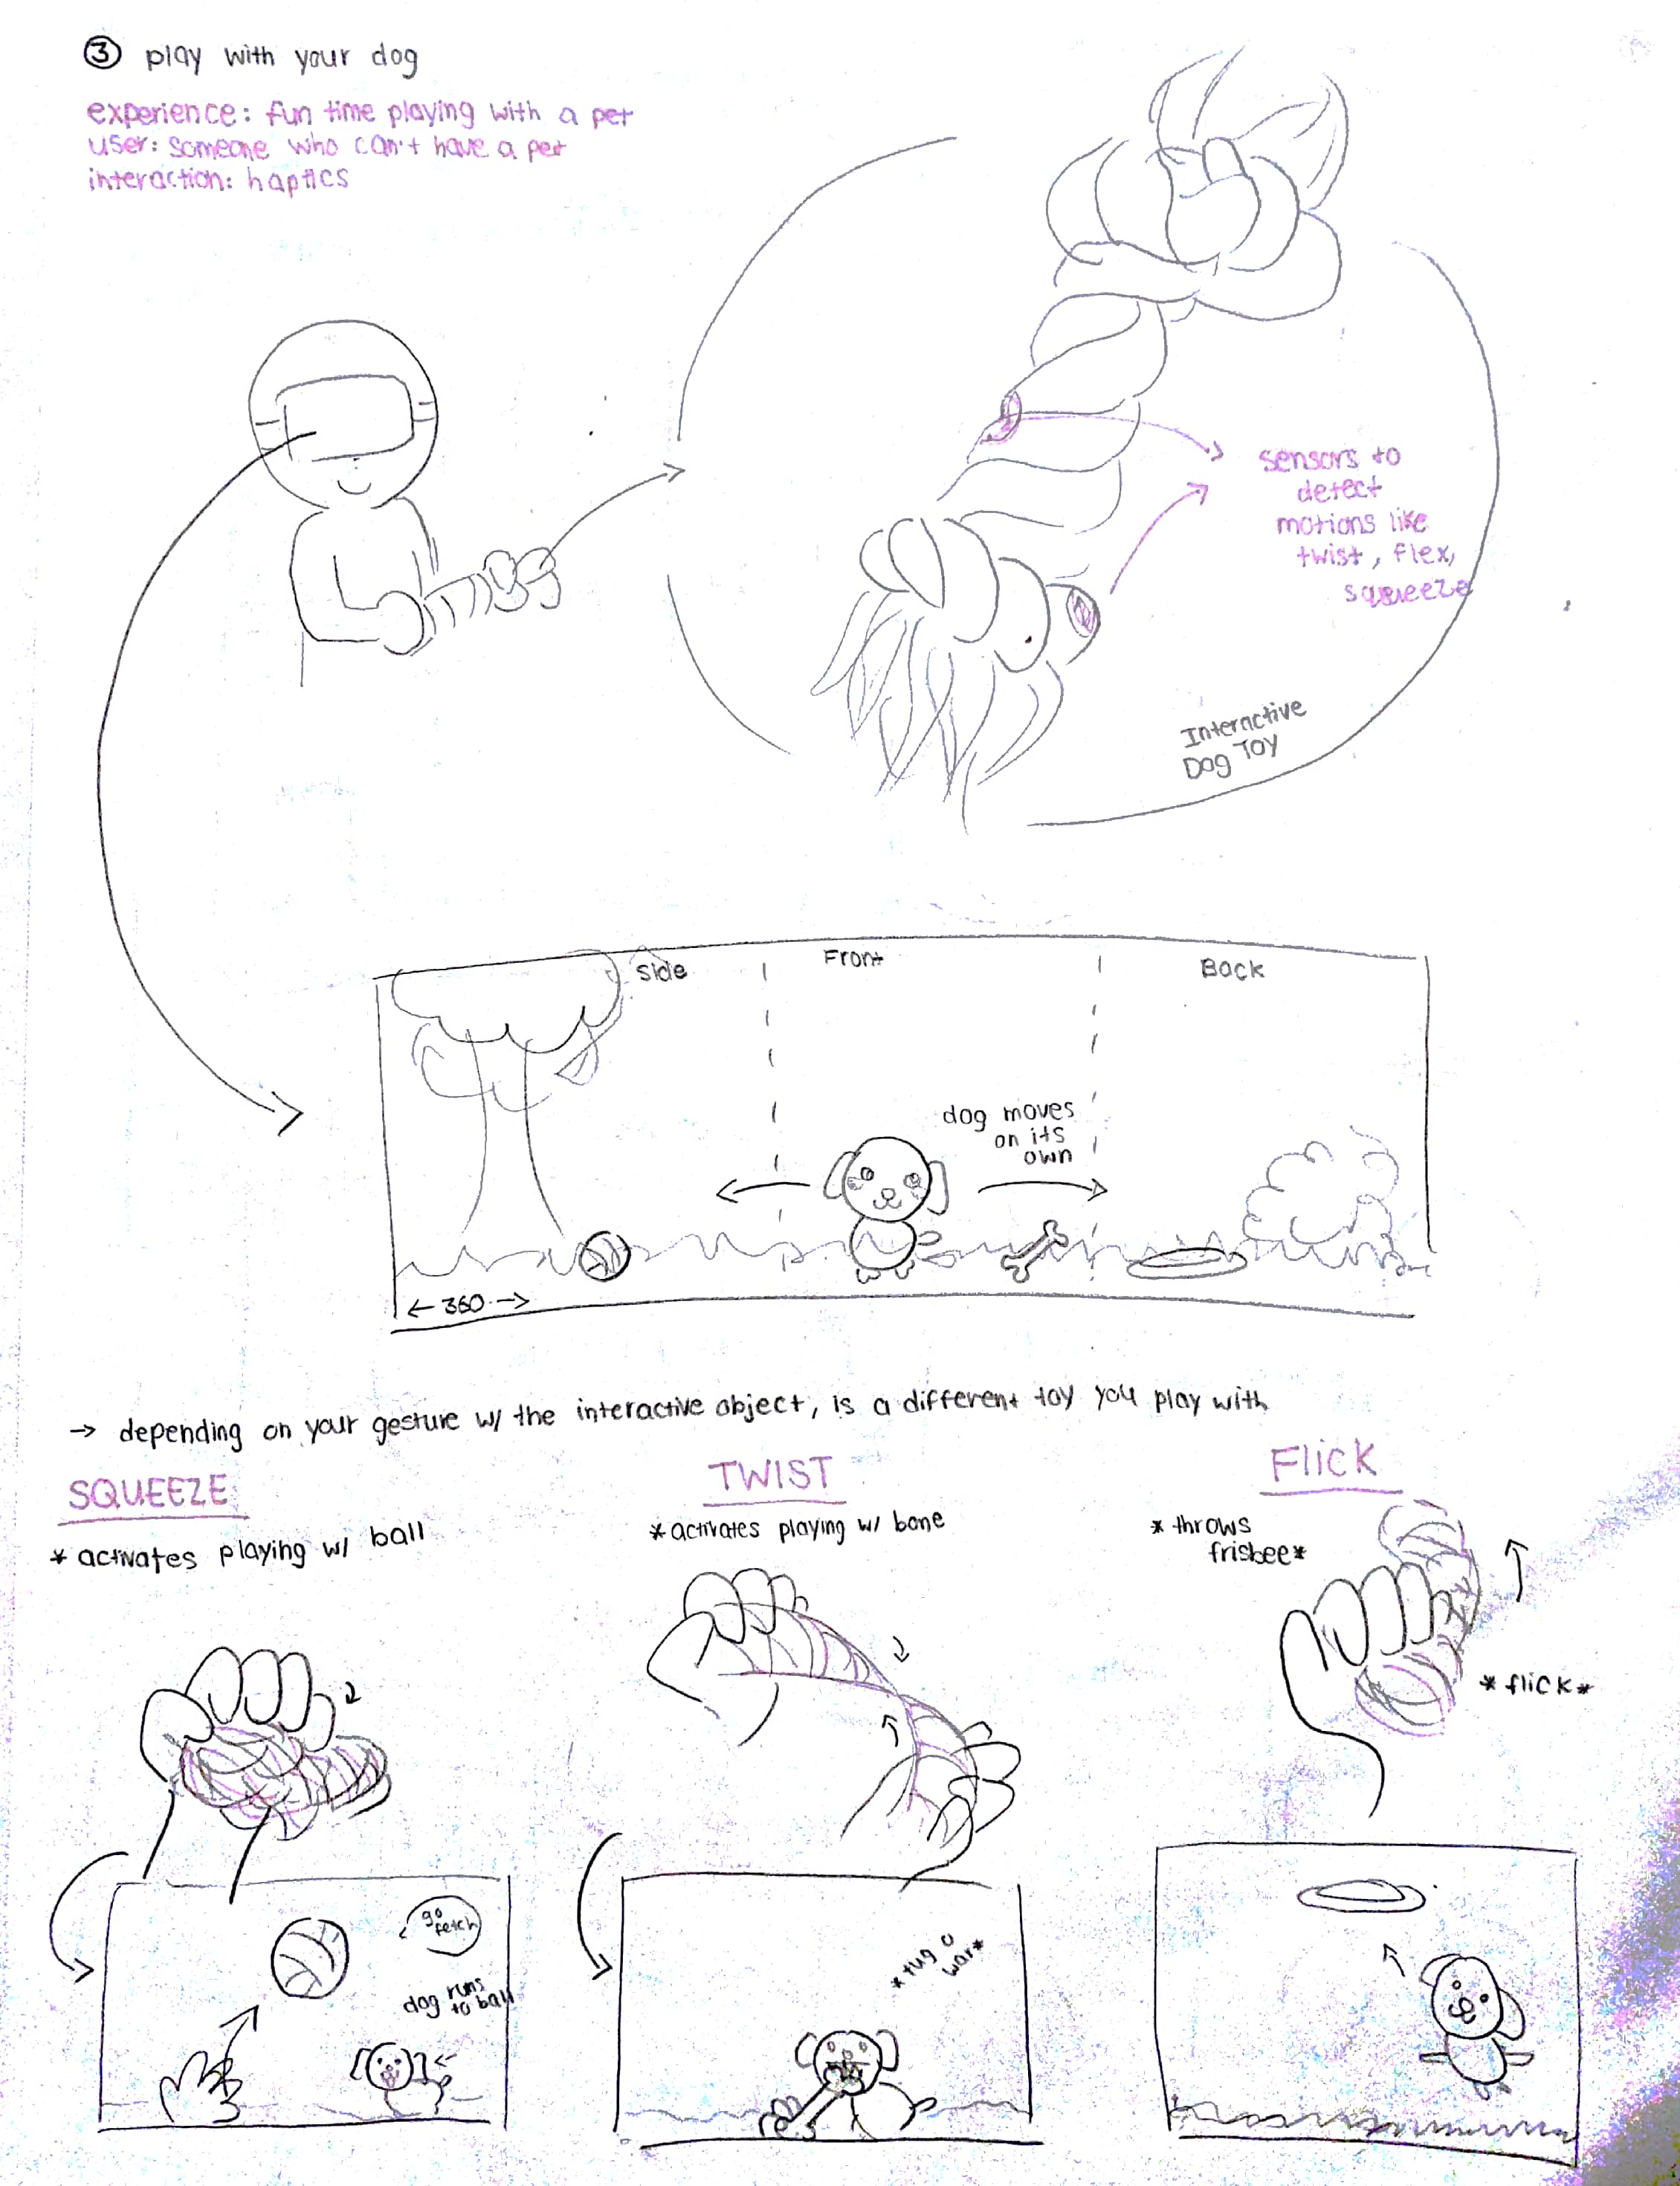 ③ play with your dog
experience: fun time playing with a pet
user: someone who can't have a pet
interaction: haptics
sensors to
detect
motions like
twist, flex,
squeeze
Interactive
Dog Toy
Side
Front
Back
dog moves
on its
own
← 360 →
→ depending on your gesture w/ the interactive object, is a different toy you play with
SQUEEZE
* activates playing w/ ball
TWIST
* activates playing w/ bone
Flick
* throws
frisbee*
* flick *
go
fetch
dog runs
to ball
* tug o
war *